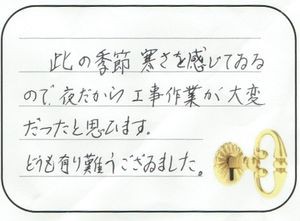 此の季節 寒さを感じてゐる
ので、夜だから 工事作業が 大変
だったと思ひます。
どうも有り難うござゐました。